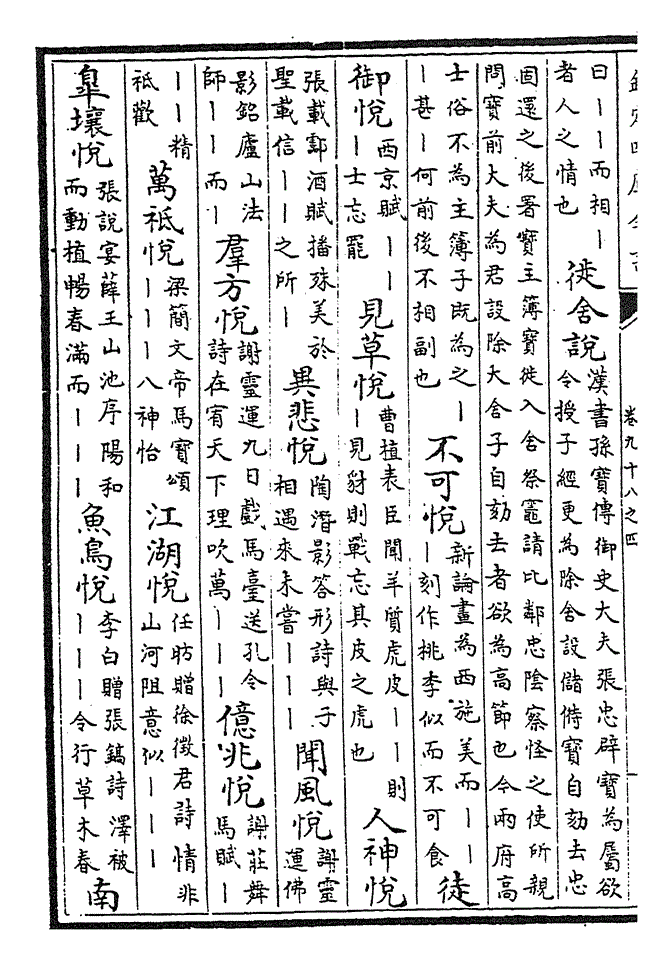 卷九十八之四
曰丨丨而相丨
者人之情也
徙舍說
漢書孫寶傳御史大夫張忠辟寶為屬欲
令授子經更為除舍設儲偫寶自劾去忠
固還之後署寶主簿寶徙入舍祭竈請比鄰忠陰察怪之使所親
問寶前大夫為君設除大舍子自劾去者欲為高節也今兩府高
士俗不為主簿子既為之丨
丨甚丨何前後不相副也
不可悅
新論畫為西施美而丨丨
丨刻作桃李似而不可食
徒
御悅
西京賦丨丨
丨士忘罷
見草悅
曹植表臣聞羊質虎皮丨丨則
丨見豺則戰忘其皮之虎也
人神悅
張載酃酒賦播殊美於
聖載信丨丨之所丨
異悲悅
陶潛影答形詩與子
相遇來未嘗丨丨丨
聞風悅
謝靈
運佛
影銘廬山法
師丨丨而丨
羣方悅
謝靈運九日戲馬臺送孔令
詩在宥天下理吹萬丨丨丨
億兆悅
謝莊舞
馬賦丨
丨丨精
祗歡
萬祗悅
梁簡文帝馬寶頌
丨丨丨八神怡
江湖悅
任昉贈徐徵君詩情非
山河阻意似丨丨丨
臯壤悅
張說宴薛王山池序陽和
而動植暢春滿而丨丨丨
魚鳥悅
李白贈張鎬詩澤被
丨丨丨令行草木春
南